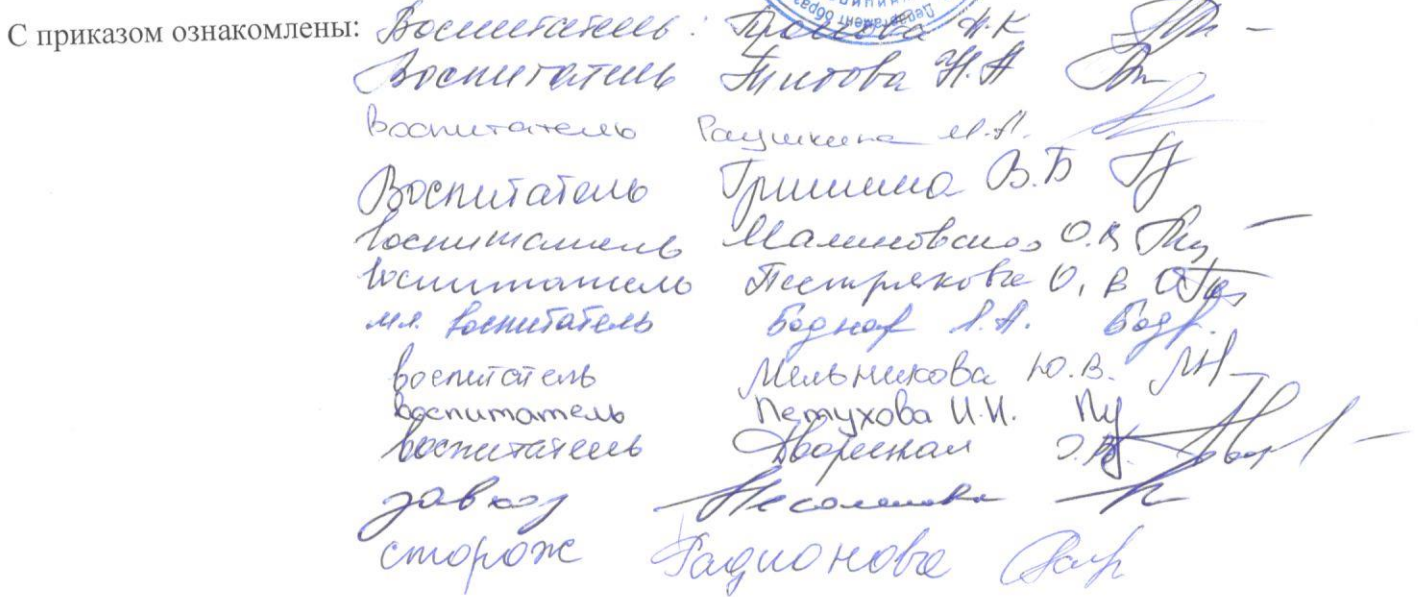 С приказом ознакомлены: Воспитатель: Громова Н.К
Воспитатель Титова Н.А
Воспитатель Раушкина М.А.
Воспитатель Гришина В.Б
воспитатель Малиновская О.В
воспитатель Пестрякова О.В
мл. воспитатель Боднар А.А. Бодр.
воспитатель Мельникова Ю.В.
воспитатель Петухова И.И.
воспитатель Дворецкая Э.В.
завхоз
сторож Радионова